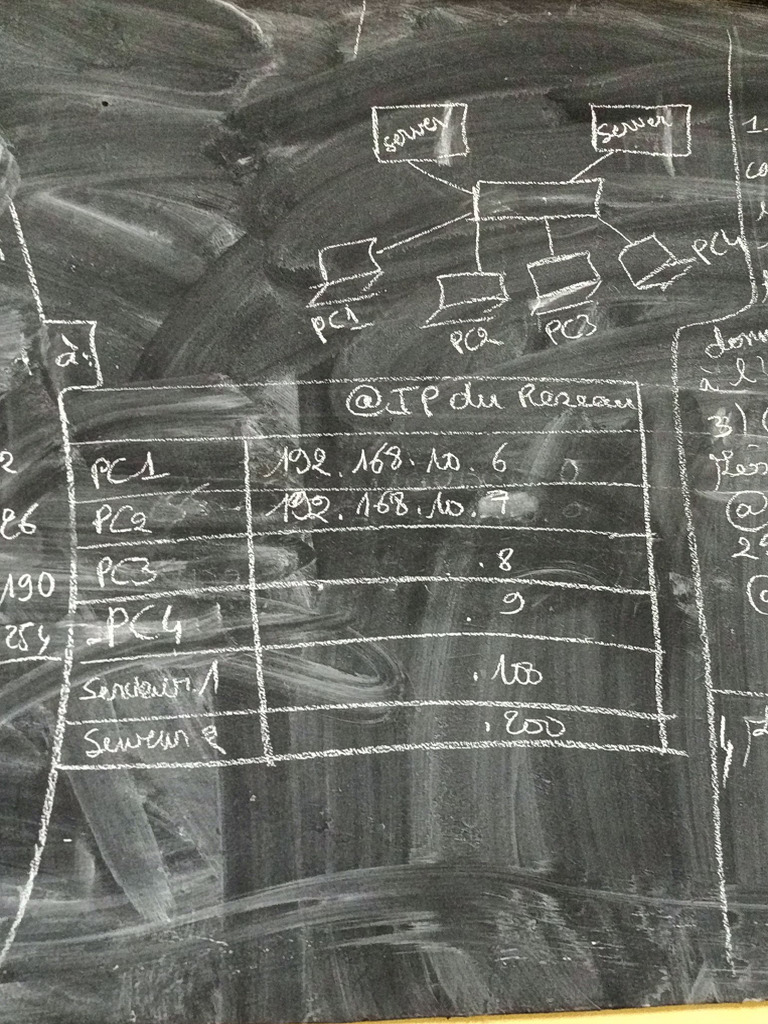 server
server
PC1
PC2
PC3
PC4
à.
@IP du Reseau
PC1 192.168.10.6
PC2 192.168.10.7
PC3 .8
PC4 .9
Serveur 1 .100
Serveur 2 .200
2
86
190
254
1.
co
donn
à l'
3) C
@
25
@